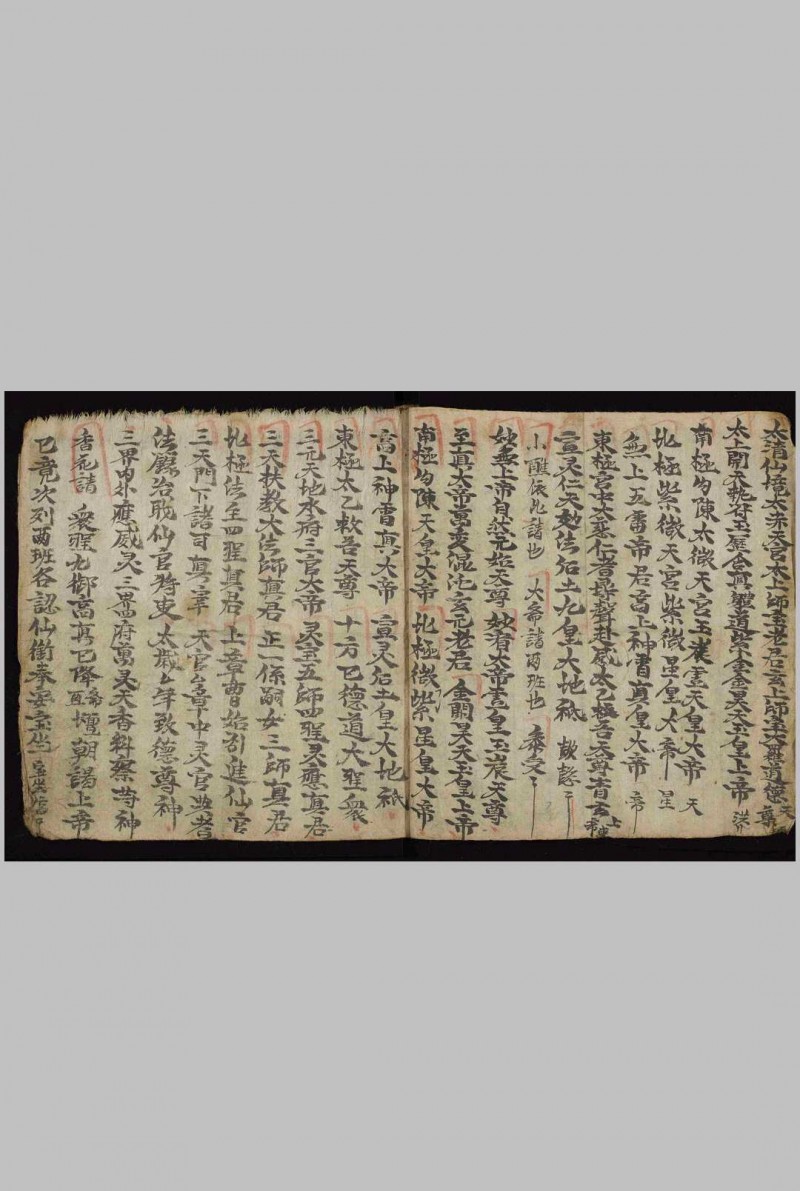 太清仙境太赤天宮太上師玉老君玄上師玉太羅道德天尊
太上開天執符玉歷含真體道紫金金昊天玉皇上帝 洪
南極勾陳太微天宮玉震灵天皇大帝 天
北極紫微天宮紫微星皇大帝 星
無上五雷帝君高上神霄真皇大帝 帝
東極宮中大慈仁者尋聲赴感太乙救苦天尊青玄上帝
宣灵仁天効法后土九皇大地祇
小醮依此請也 大斋請両班也
妙無上帝自然元始天尊 妙有大帝玉皇玉宸天尊
至真大帝萬変混沌玄元老君 金闕昊天玉皇上帝
南極勾陳天皇大帝 北極微紫星皇大帝
高上神霄真大帝 宣灵后土皇大地祇
東極太乙救苦天尊 十方已德道大聖衆
三元天地水府三官大帝 灵宝五師四聖灵應真君
三天扶教大法師真君 正一係嗣女三師真君
北極法主四聖真君 上章曹始引進仙官
三天門下諸司真宰 天官章中灵官典者
法籙治職仙官將吏 太歲年致德尊神
三界内外應感灵 三界府萬灵天香科察等神
香花請 衆聖九御高真已降壇朝謁上帝
已竟次列両班各認仙銜奉安宝坐